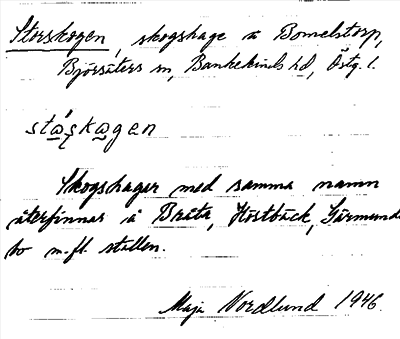 Storskogen, skogshage å Bomelstorp,
Björsäters sn, Bankekinds hd, Östg. l.
stωşkωgen
Skogshagar med samma namn
återfinnas å Bråta, Höstbäck, Gärmunde-
bo m.fl. ställen.
Maja Nordlund 1946.